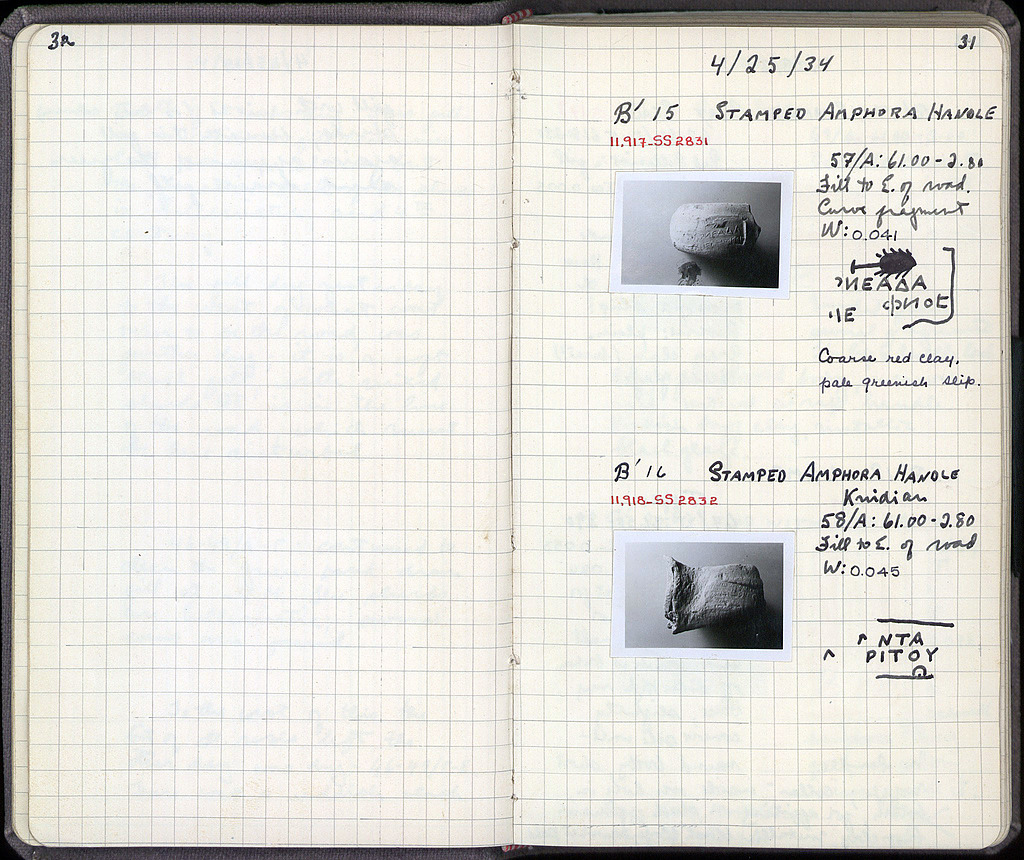 32
31
4/25/34
B' 15 STAMPED AMPHORA HANDLE
11,917-SS 2831
57/A: 61.00-2.80
Fill to E. of road.
Curve fragment
W: 0.041
ΝΕΑΔΑ
ΦΙΛΟΕ
ΙΕ
Coarse red clay.
pale greenish slip.
B' 16 STAMPED AMPHORA HANDLE
Knidian
11,918-SS 2832
58/A: 61.00-2.80
Fill to E. of road
W: 0.045
ΝΤΑ
ΡΙΤΟΥ